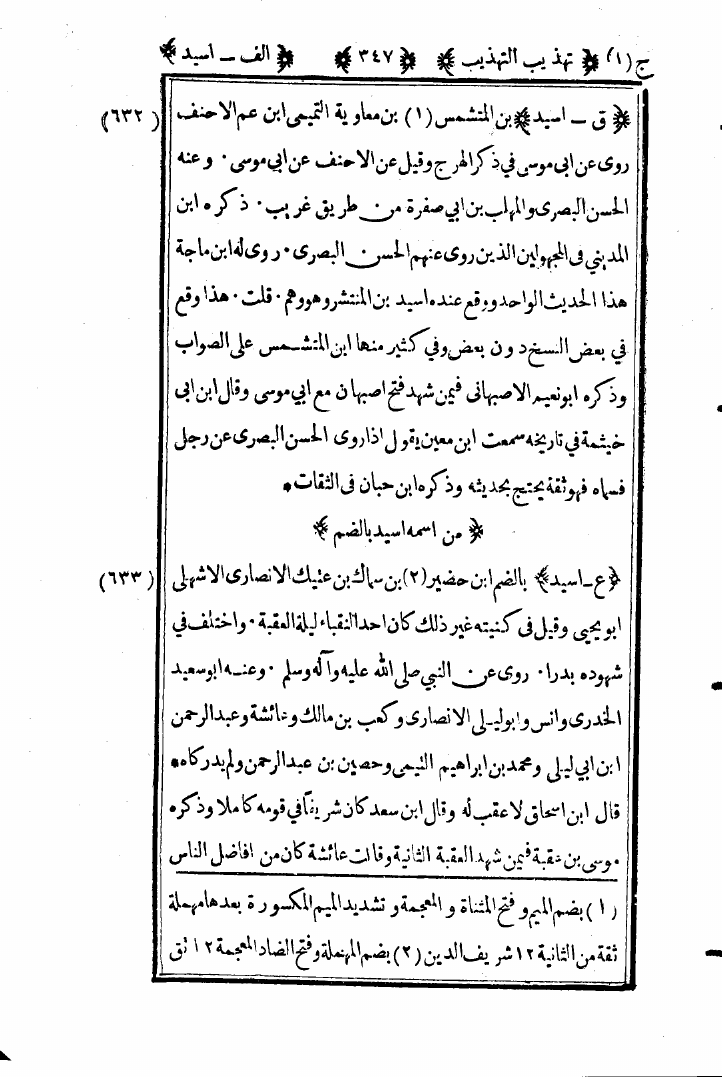 ج (١) ﴿ تهذيب التهذيب ﴾ ﴿ ٣٤٧ ﴾ ﴿ الف ــ اسيد ﴾
﴿ ق ــ اسيد ﴾ بن المتشمس (١) بن معاوية التميمى ابن عم الاحنف (٦٣٢)
روى عن ابى موسى فى ذكر الهرج وقيل عن الاحنف عن ابى موسى ٠ وعنه
الحسن البصرى والمهلب بن ابي صفرة من طريق غريب ٠ ذكره ابن
المديني فى المجهولين الذين روى عنهم الحسن البصرى ٠ روى له ابن ماجة
هذا الحديث الواحد ووقع عنده اسيد بن المنتشر وهو وهم ٠ قلت ٠ هذا وقع
في بعض النسخ دون بعض وفي كثير منها ابن المتشمس على الصواب
وذكره ابو نعيم الاصبهانى فيمن شهد فتح اصبهان مع ابي موسى وقال ابن ابى
خيثمة في تاريخه سمعت ابن معين يقول اذا روى الحسن البصرى عن رجل
فسماه فهو ثقة يحتج بحديثه وذكره ابن حبان فى الثقات *
﴿ من اسمه اسيد بالضم ﴾
﴿ ع ــ اسيد ﴾ بالضم ابن حضير (٢) بن سماك بن عتيك الانصارى الاشهلى (٦٣٣)
ابو يحيى وقيل فى كنيته غير ذلك كان احد النقباء ليلة العقبة ٠ واختلف في
شهوده بدرا ٠ روى عن النبي صلى الله عليه وآله وسلم ٠ وعنه ابو سعيد
الخدرى وانس وابو ليلى الانصارى وكعب بن مالك وعائشة وعبد الرحمن
ابن ابي ليلى ومحمد بن ابراهيم التيمى وحصين بن عبد الرحمن ولم يدركاه *
قال ابن اسحاق لا عقب له وقال ابن سعد كان شريفاً في قومه كاملا وذكره
موسى بن عقبة فيمن شهد العقبة الثانية وقالت عائشة كان من افاضل الناس
(١) بضم الميم وفتح المثناة و المعجمة و تشديد الميم المكسورة بعدها مهملة
ثقة من الثانية ١٢ شريف الدين (٢) بضم المهملة وفتح الضاد المعجمة ١٢ تق